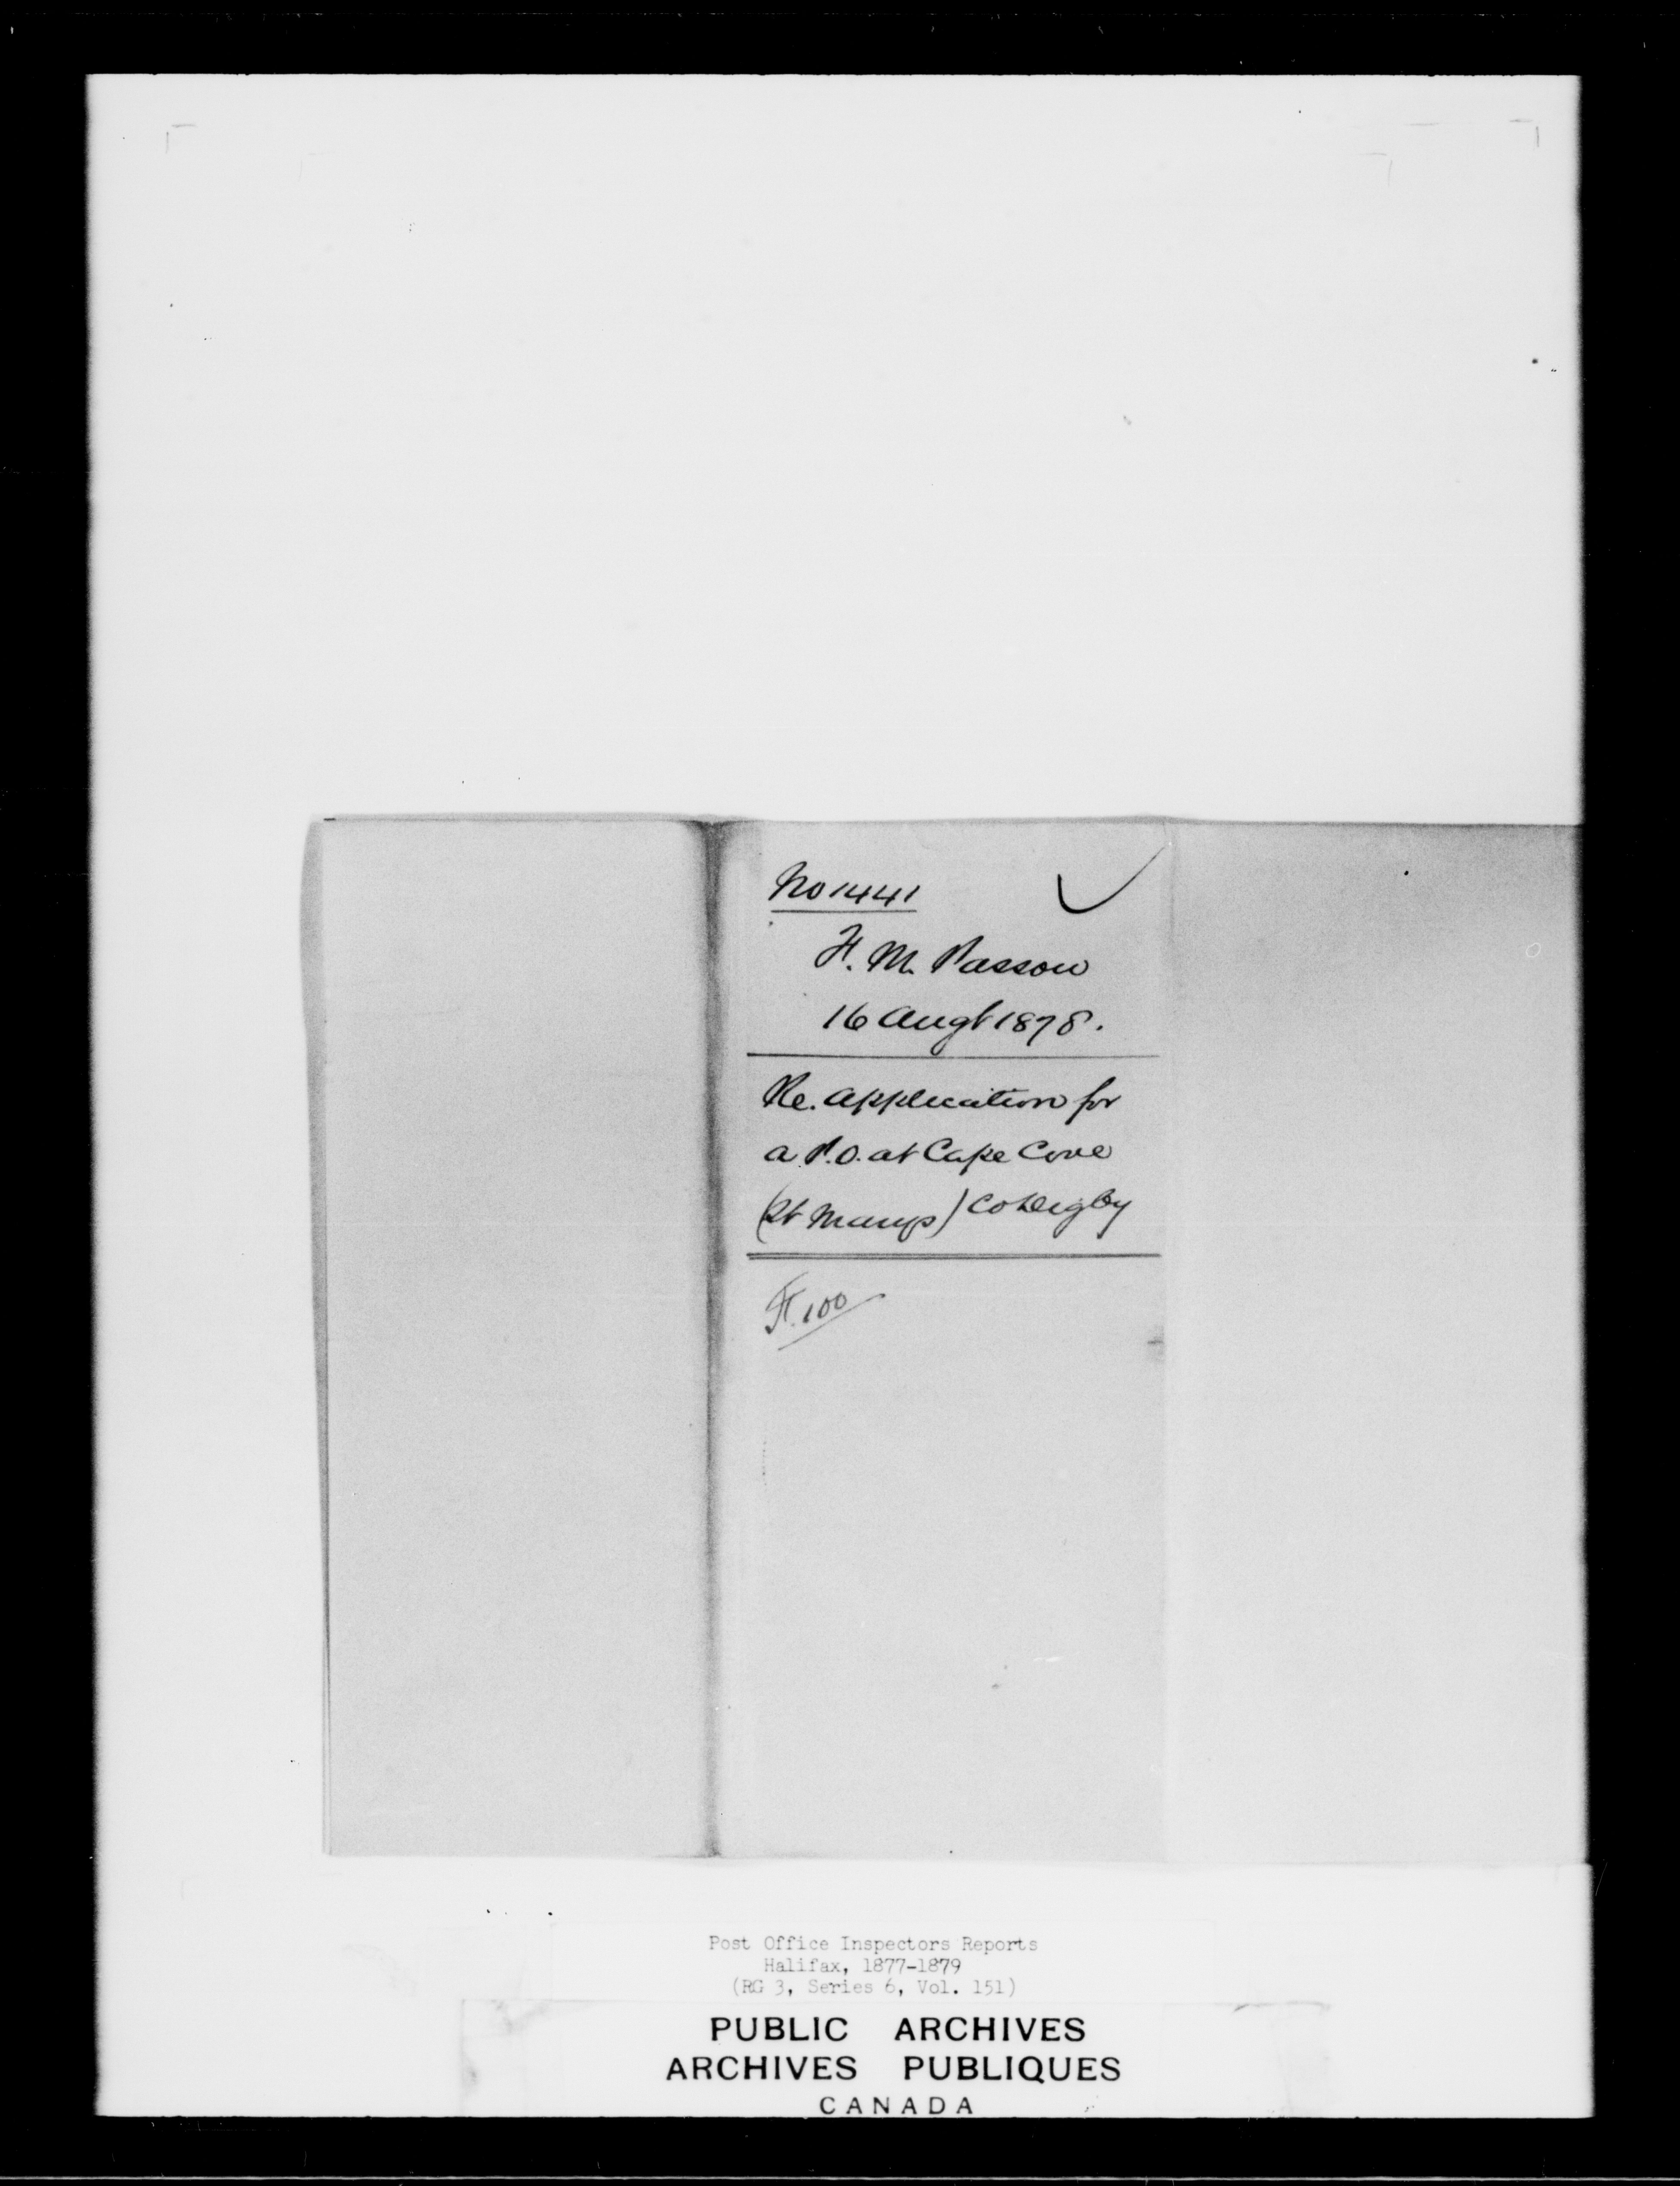 No 1441
F. M. Passow
16 Augt 1878.
Re. Application for
a P.O. at Cape Cove
(St Marys) Co Digby
F. 100
Post Office Inspectors Reports
Halifax, 1877-1879
(RG 3, Series 6, Vol. 151)
PUBLIC ARCHIVES
ARCHIVES PUBLIQUES
CANADA